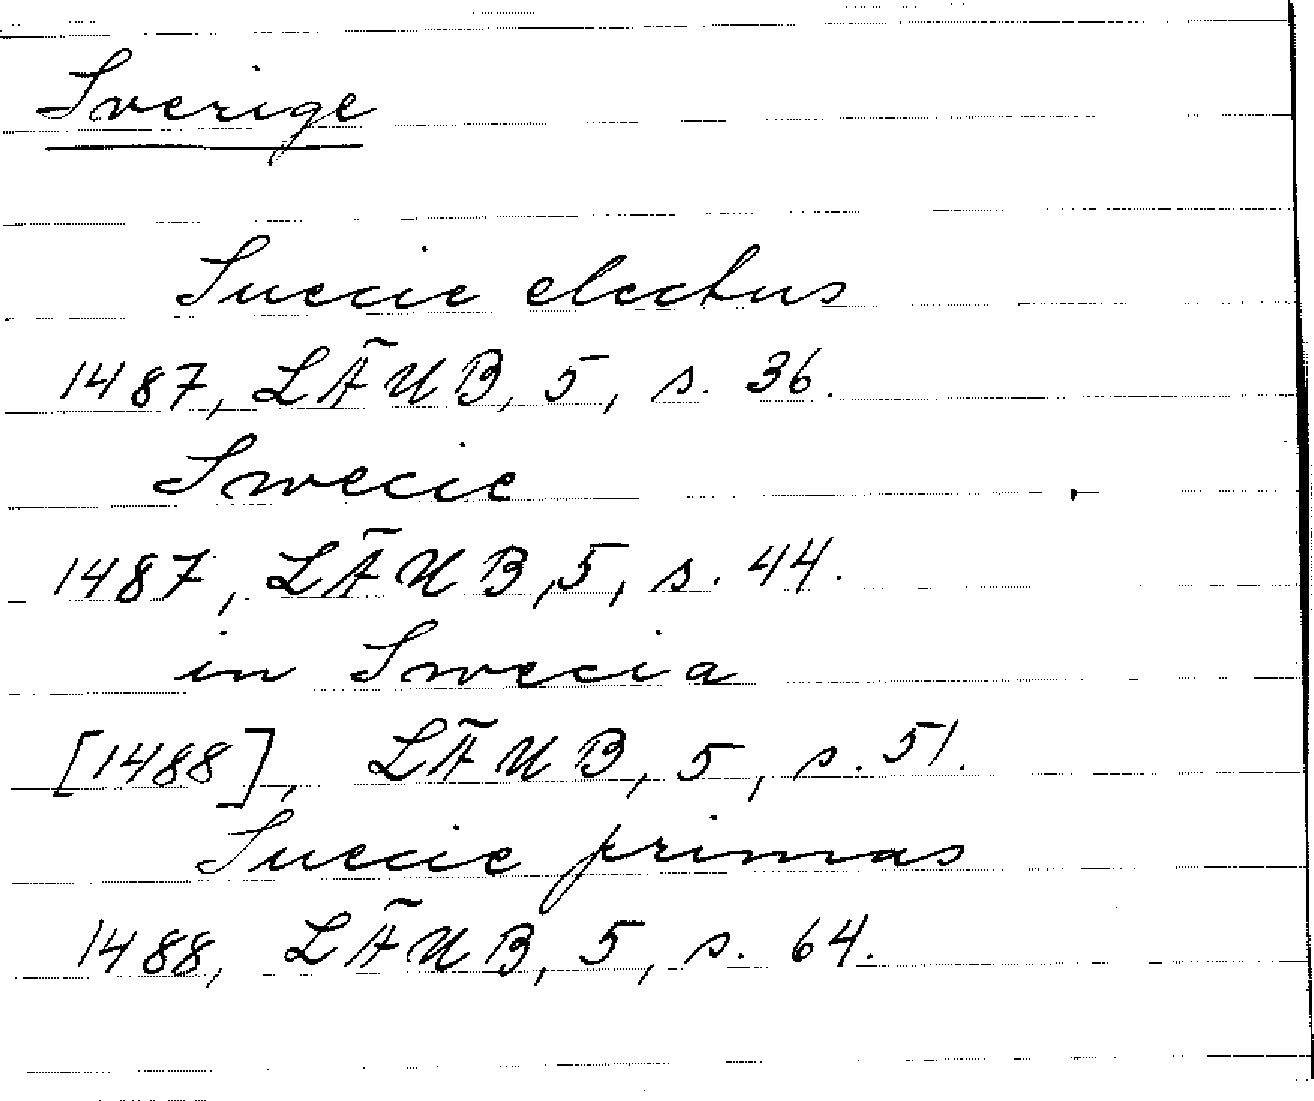 Sverige
Suecie electus
1487, LÄUB, 5, s. 36.
Swecie
1487, LÄUB, 5, s. 44.
in Swecia
[1488], LÄUB, 5, s. 51.
Suecie primas
1488, LÄUB, 5, s. 64.